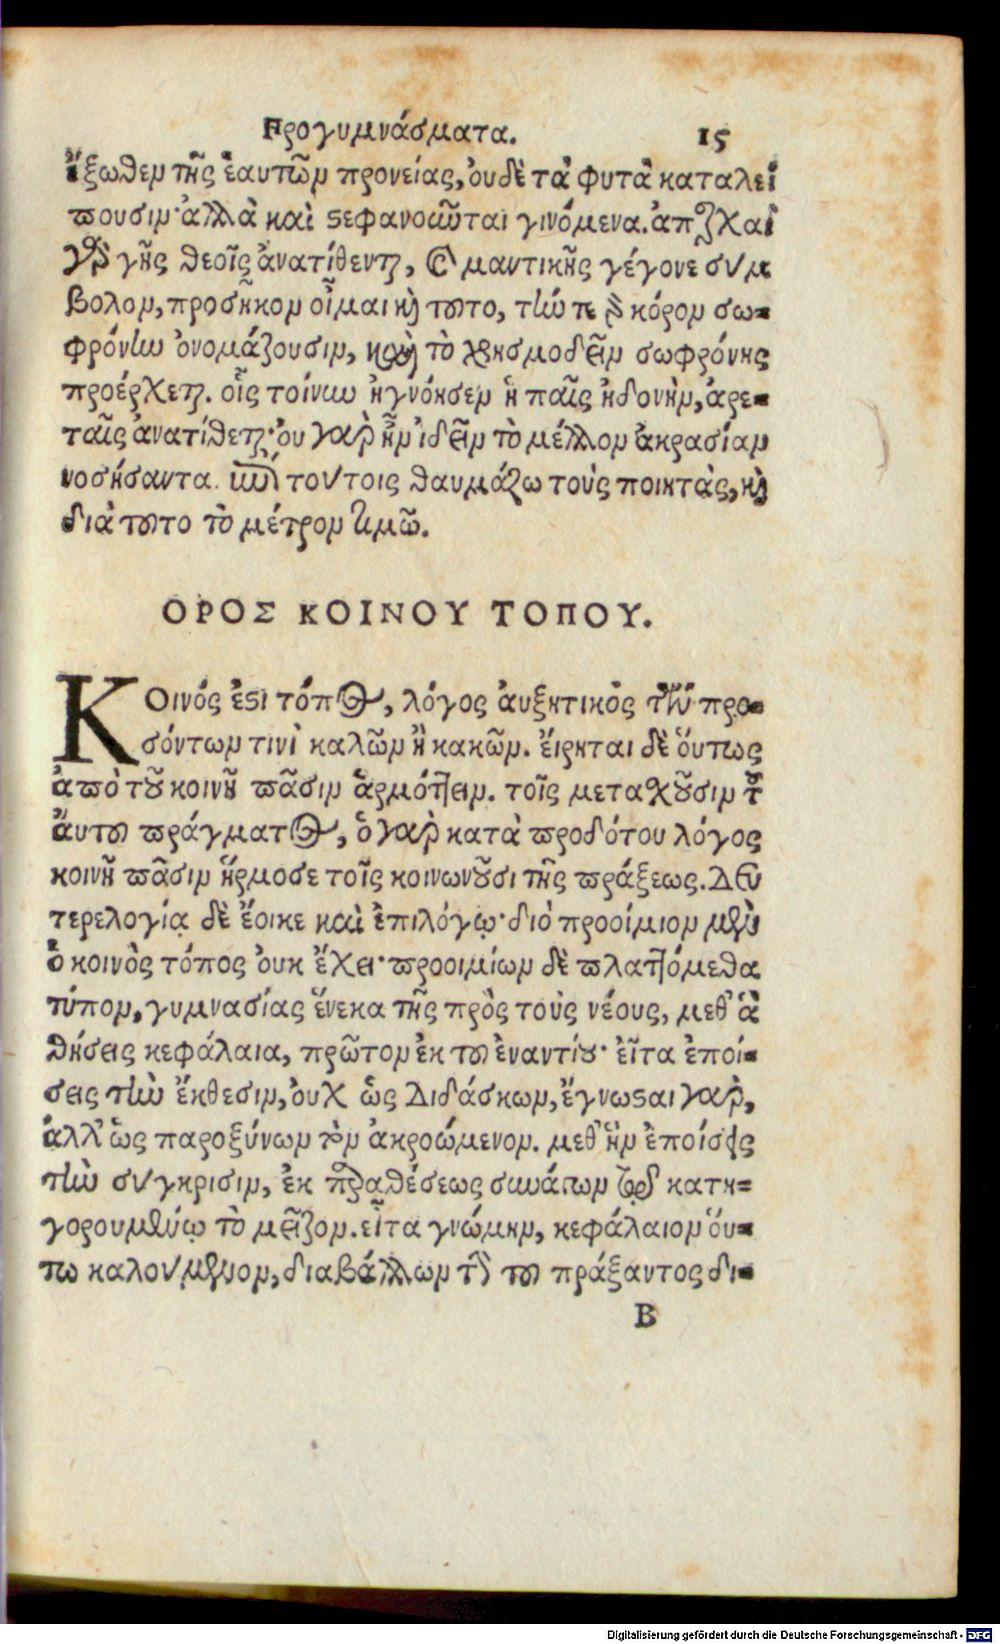 Προγυμνάσματα. 15
ἔξωθεν τῆς ἑαυτῶν προνείας, ὀυδὲ τὰ φυτὰ καταλεί
πουσιν· ἀλλὰ καὶ στεφανοῦται γινόμενα. ἀπαρχαὶ
γὰρ γῆς θεοῖς ἀνατίθενται, καὶ μαντικῆς γέγονε σύμ
βολον, προσῆκον οἶμαι καὶ τοῦτο, τήν τε γὰρ κόρον σω-
φρόνίω ὀνομάζουσιν, καὶ τὸ χρησμοδεῖν σωφρόνης
προέρχεται. οἷς τοίνυν ἠγνόησεν ἡ παῖς ἡδονὴν, ἀρε-
ταῖς ἀνατίθεται· ὀυ γὰρ ἦν ἰδεῖν τὸ μέλλον ἀκρασίαν
νοσήσαντα. ὑπὲρ τούτοις θαυμάζω τοὺς ποιητὰς, καὶ
διὰ τοῦτο τὸ μέτρον τιμῶ.
ΟΡΟΣ ΚΟΙΝΟΥ ΤΟΠΟΥ.
ΚΟινός ἐστι τόπος, λόγος ἀυξητικὸς τῶν προ-
σόντων τινὶ καλῶν ἢ κακῶν. ἔιρηται δὲ ὅυτως
ἀπὸ τοῦ κοινῆ πᾶσιν ἁρμόττειν. τοῖς μεταχοῦσιν τοῦ
ἀυτοῦ πράγματος, ὁ γὰρ κατὰ προδότου λόγος
κοινῆ πᾶσιν ἥρμοσε τοῖς κοινωνοῦσι τῆς πράξεως. Δευ
τερελογίᾳ δὲ ἔοικε καὶ ἐπιλόγῳ· διὸ προοίμιον μὲν
ὁ κοινὸς τόπος ὀυκ ἔχει· προοιμίων δὲ πλαττόμεθα
τύπον, γυμνασίας ἕνεκα τῆς πρὸς τοὺς νέους, μεθ' ἃ
θήσεις κεφάλαια, πρῶτον ἐκ τοῦ ἐναντίου· εἶτα ἐποί-
σεις τὴν ἔκθεσιν, ὀυχ ὡς Διδάσκων, ἔγνωσται γὰρ,
ἀλλ' ὡς παροξύνων τὸν ἀκροώμενον. μεθ' ἣν ἐποίσεις
τὴν σύγκρισιν, ἐκ παραθέσεως συνάπων τῷ κατη-
γορουμένῳ τὸ μεῖζον. εἶτα γνώμην, κεφάλαιον ὅυ-
τω καλούμενον, διαβάλλων τὴν τοῦ πράξαντος δι-
B
Digitalisierung gefördert durch die Deutsche Forschungsgemeinschaft - DFG